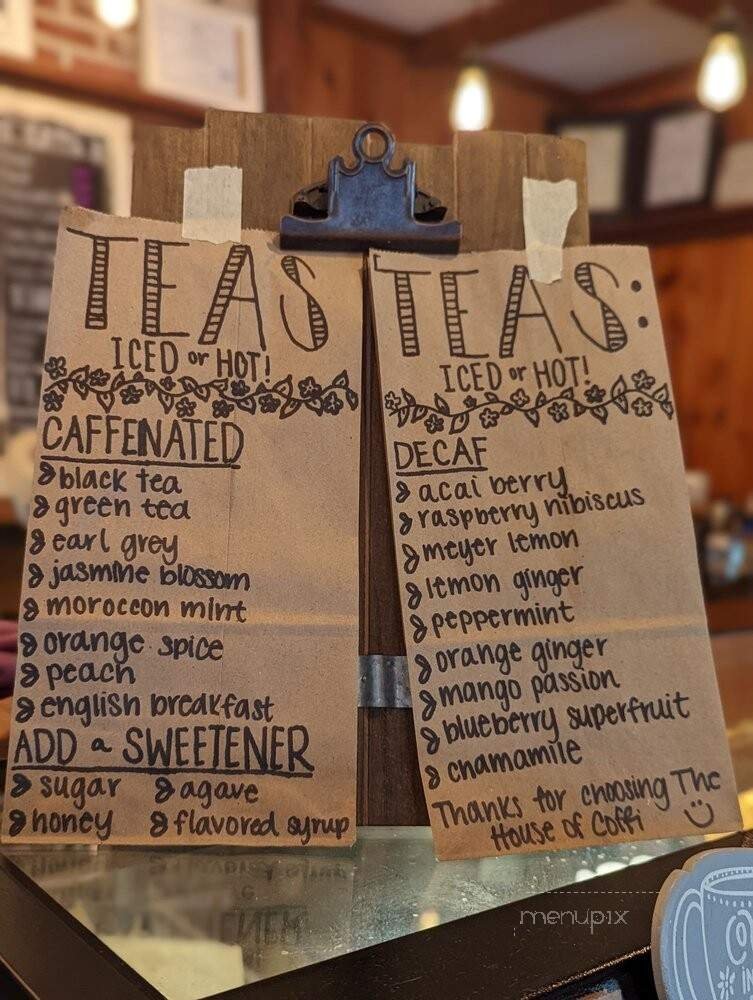 TEAS
ICED or HOT!
CAFFEINATED
black tea
green tea
earl grey
jasmine blossom
moroccon mint
orange spice
peach
english breakfast
ADD a SWEETENER
sugar agave
honey flavored syrup
TEAS:
ICED or HOT!
DECAF
acai berry
raspberry hibiscus
meyer lemon
lemon ginger
peppermint
orange ginger
mango passion
blueberry superfruit
chamamile
Thanks for choosing The
House of Coffi
menupix